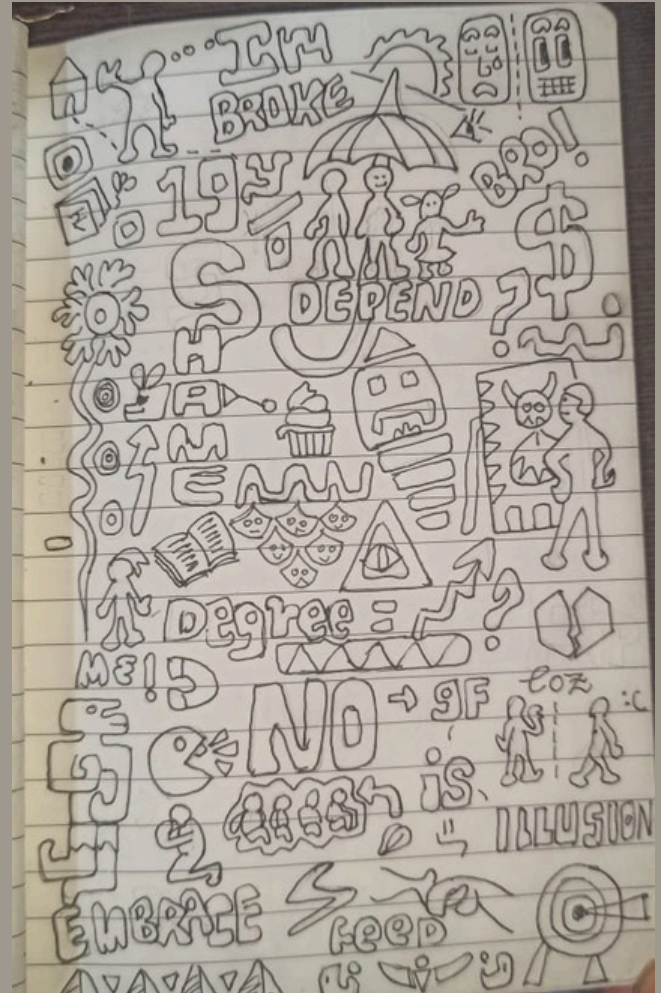 I'm
BROKE
BRO!
19y
$
SHAME
DEPEND?
Degree = ?
ME!
NO → gF
is
ILLUSION
EMBRACE
FEED